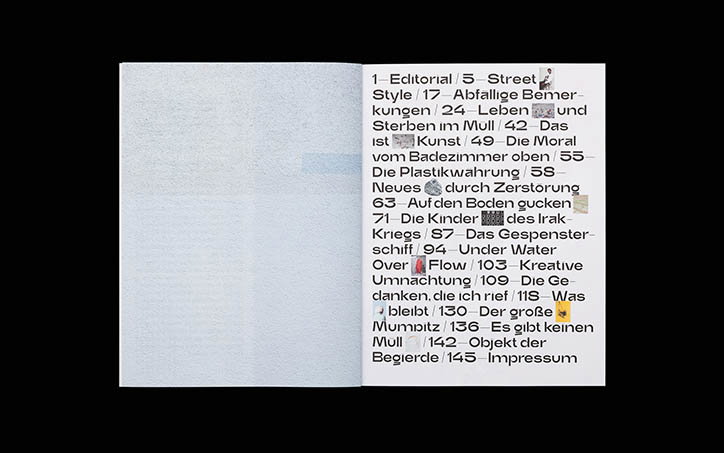 1—Editorial / 5—Street
Style / 17—Abfällige Bemer-
kungen / 24—Leben und
Sterben im Müll / 42—Das
ist Kunst / 49—Die Moral
vom Badezimmer oben / 55—
Die Plastikwährung / 58—
Neues durch Zerstörung
63—Auf den Boden gucken
71—Die Kinder des Irak-
Kriegs / 87—Das Gespenster-
schiff / 94—Under Water
Over Flow / 103—Kreative
Umnachtung / 109—Die Ge-
danken, die ich rief / 118—Was
bleibt / 130—Der große
Mumpitz / 136—Es gibt keinen
Müll / 142—Objekt der
Begierde / 145—Impressum